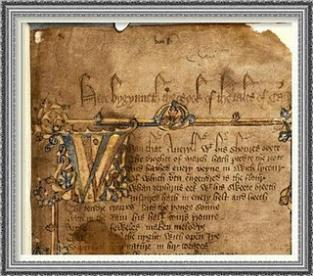 Here bygynneth the Book of the tales of
Whan that Aueryll wt his shoures soote
The droghte of march hath perced to the roote
And bathed euery veyne in swich lycour
Of which vertu engendred is the flour
Whan zephirus eek wt his sweete breeth
Inspired hath in euery holt and heeth
The tendre croppes and the yonge sonne
Hath in the Ram his half cours yronne
foweles maken melodye
the nyght with open
nature in hir corages